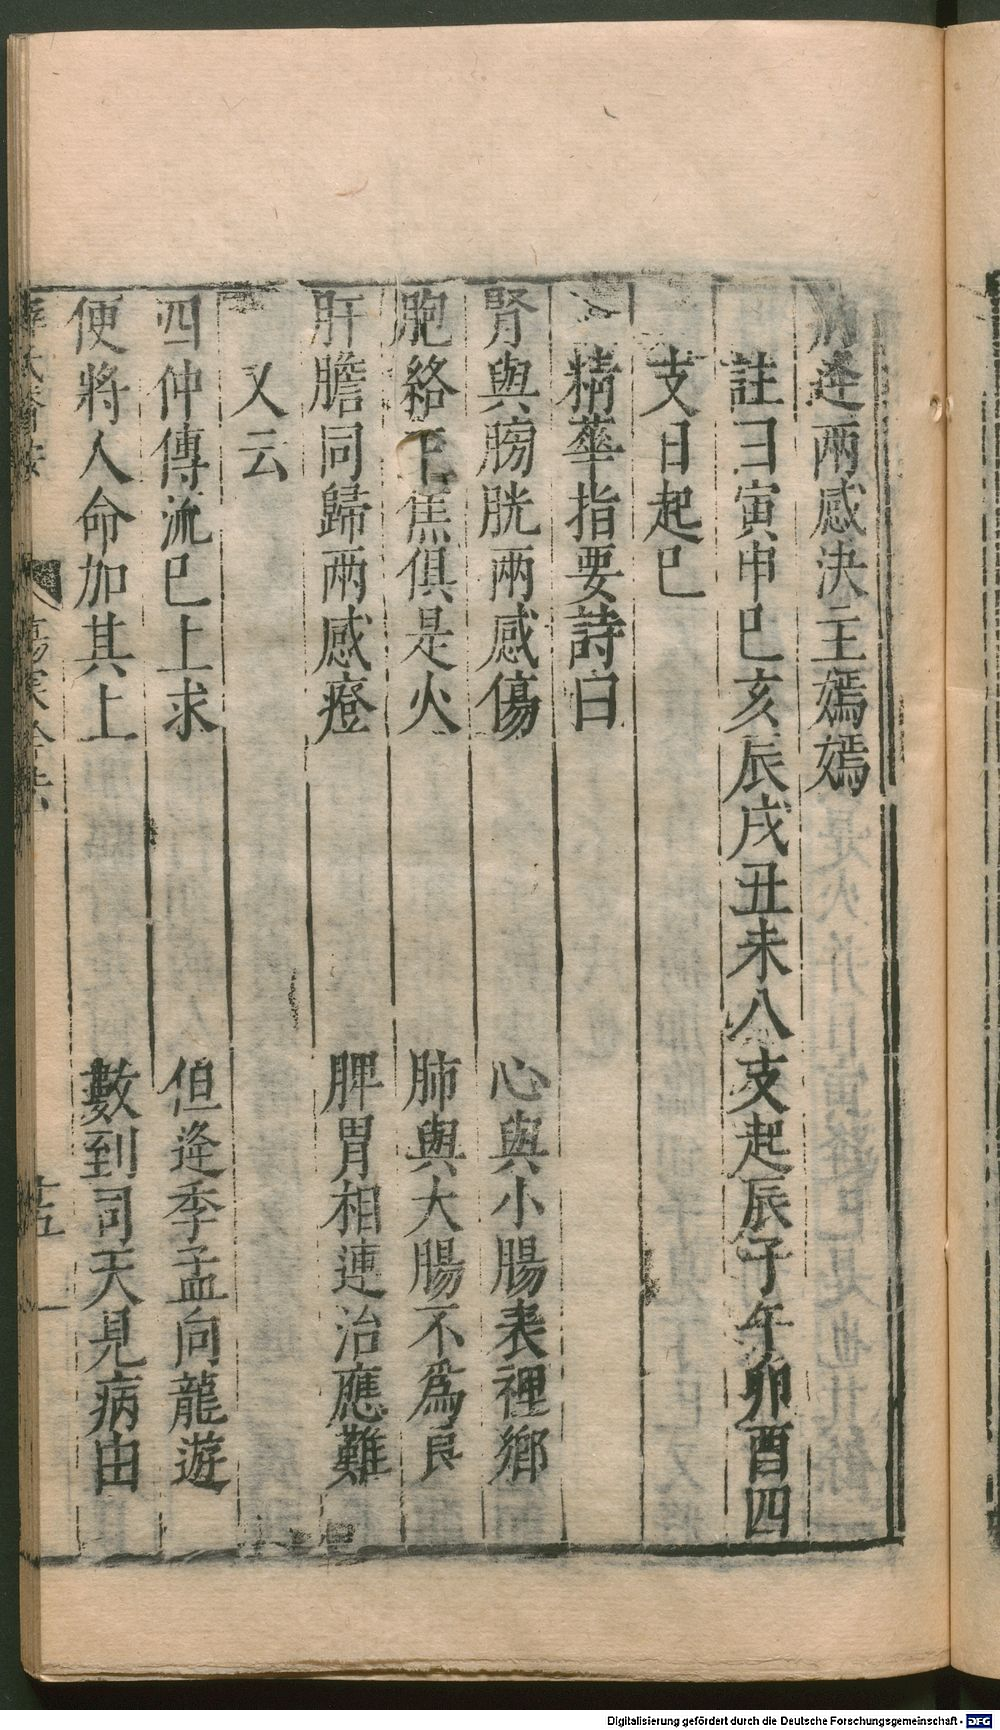 病逄兩感決主嫣嫣
註曰寅申巳亥辰戌丑未八支起辰子午卯酉四
支日起巳
精華指要詩曰
腎與膀胱兩感傷　心與小腸表裡鄉
胞絡下焦俱是火　肺與大腸不爲良
肝膽同歸兩感證　脾胃相連治應難
又云
四仲傳流巳上求　但逄季孟向龍遊
便將人命加其上　數到司天見病由
傷寒
十五
Digitalisierung gefördert durch die Deutsche Forschungsgemeinschaft - DFG